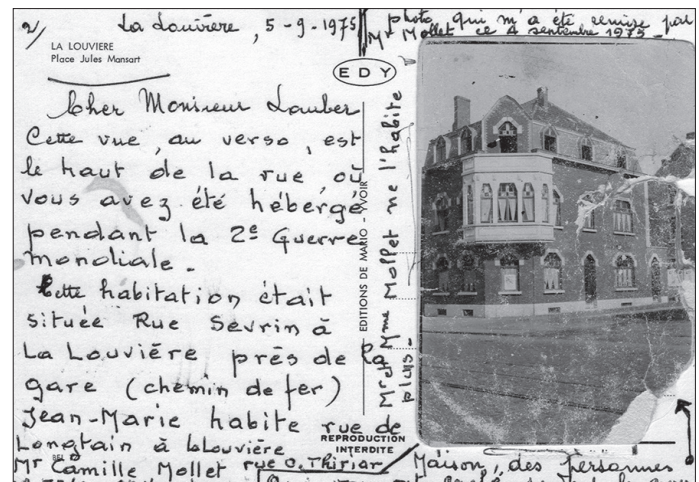 2/
La Louvière, 5-9-1975
LA LOUVIERE
Place Jules Mansart
EDY
Cher Monsieur Lauber
Cette vue, au verso, est
le haut de la rue où
vous avez été hébergé
pendant la 2e Guerre
mondiale.
Cette habitation était
située Rue Sevrin à
La Louvière près de la
gare (chemin de fer)
Jean-Marie habite rue de
Longtain à LaLouvière
Mr Camille Mollet rue O. Thiriar
EDITIONS DE MARIO - YVOIR
REPRODUCTION
INTERDITE
photo qui m'a été remise par
Mr Mollet ce 4 septembre 1975.
Mr et Mme Mollet ne l'habite
plus.
Maison, des personnes